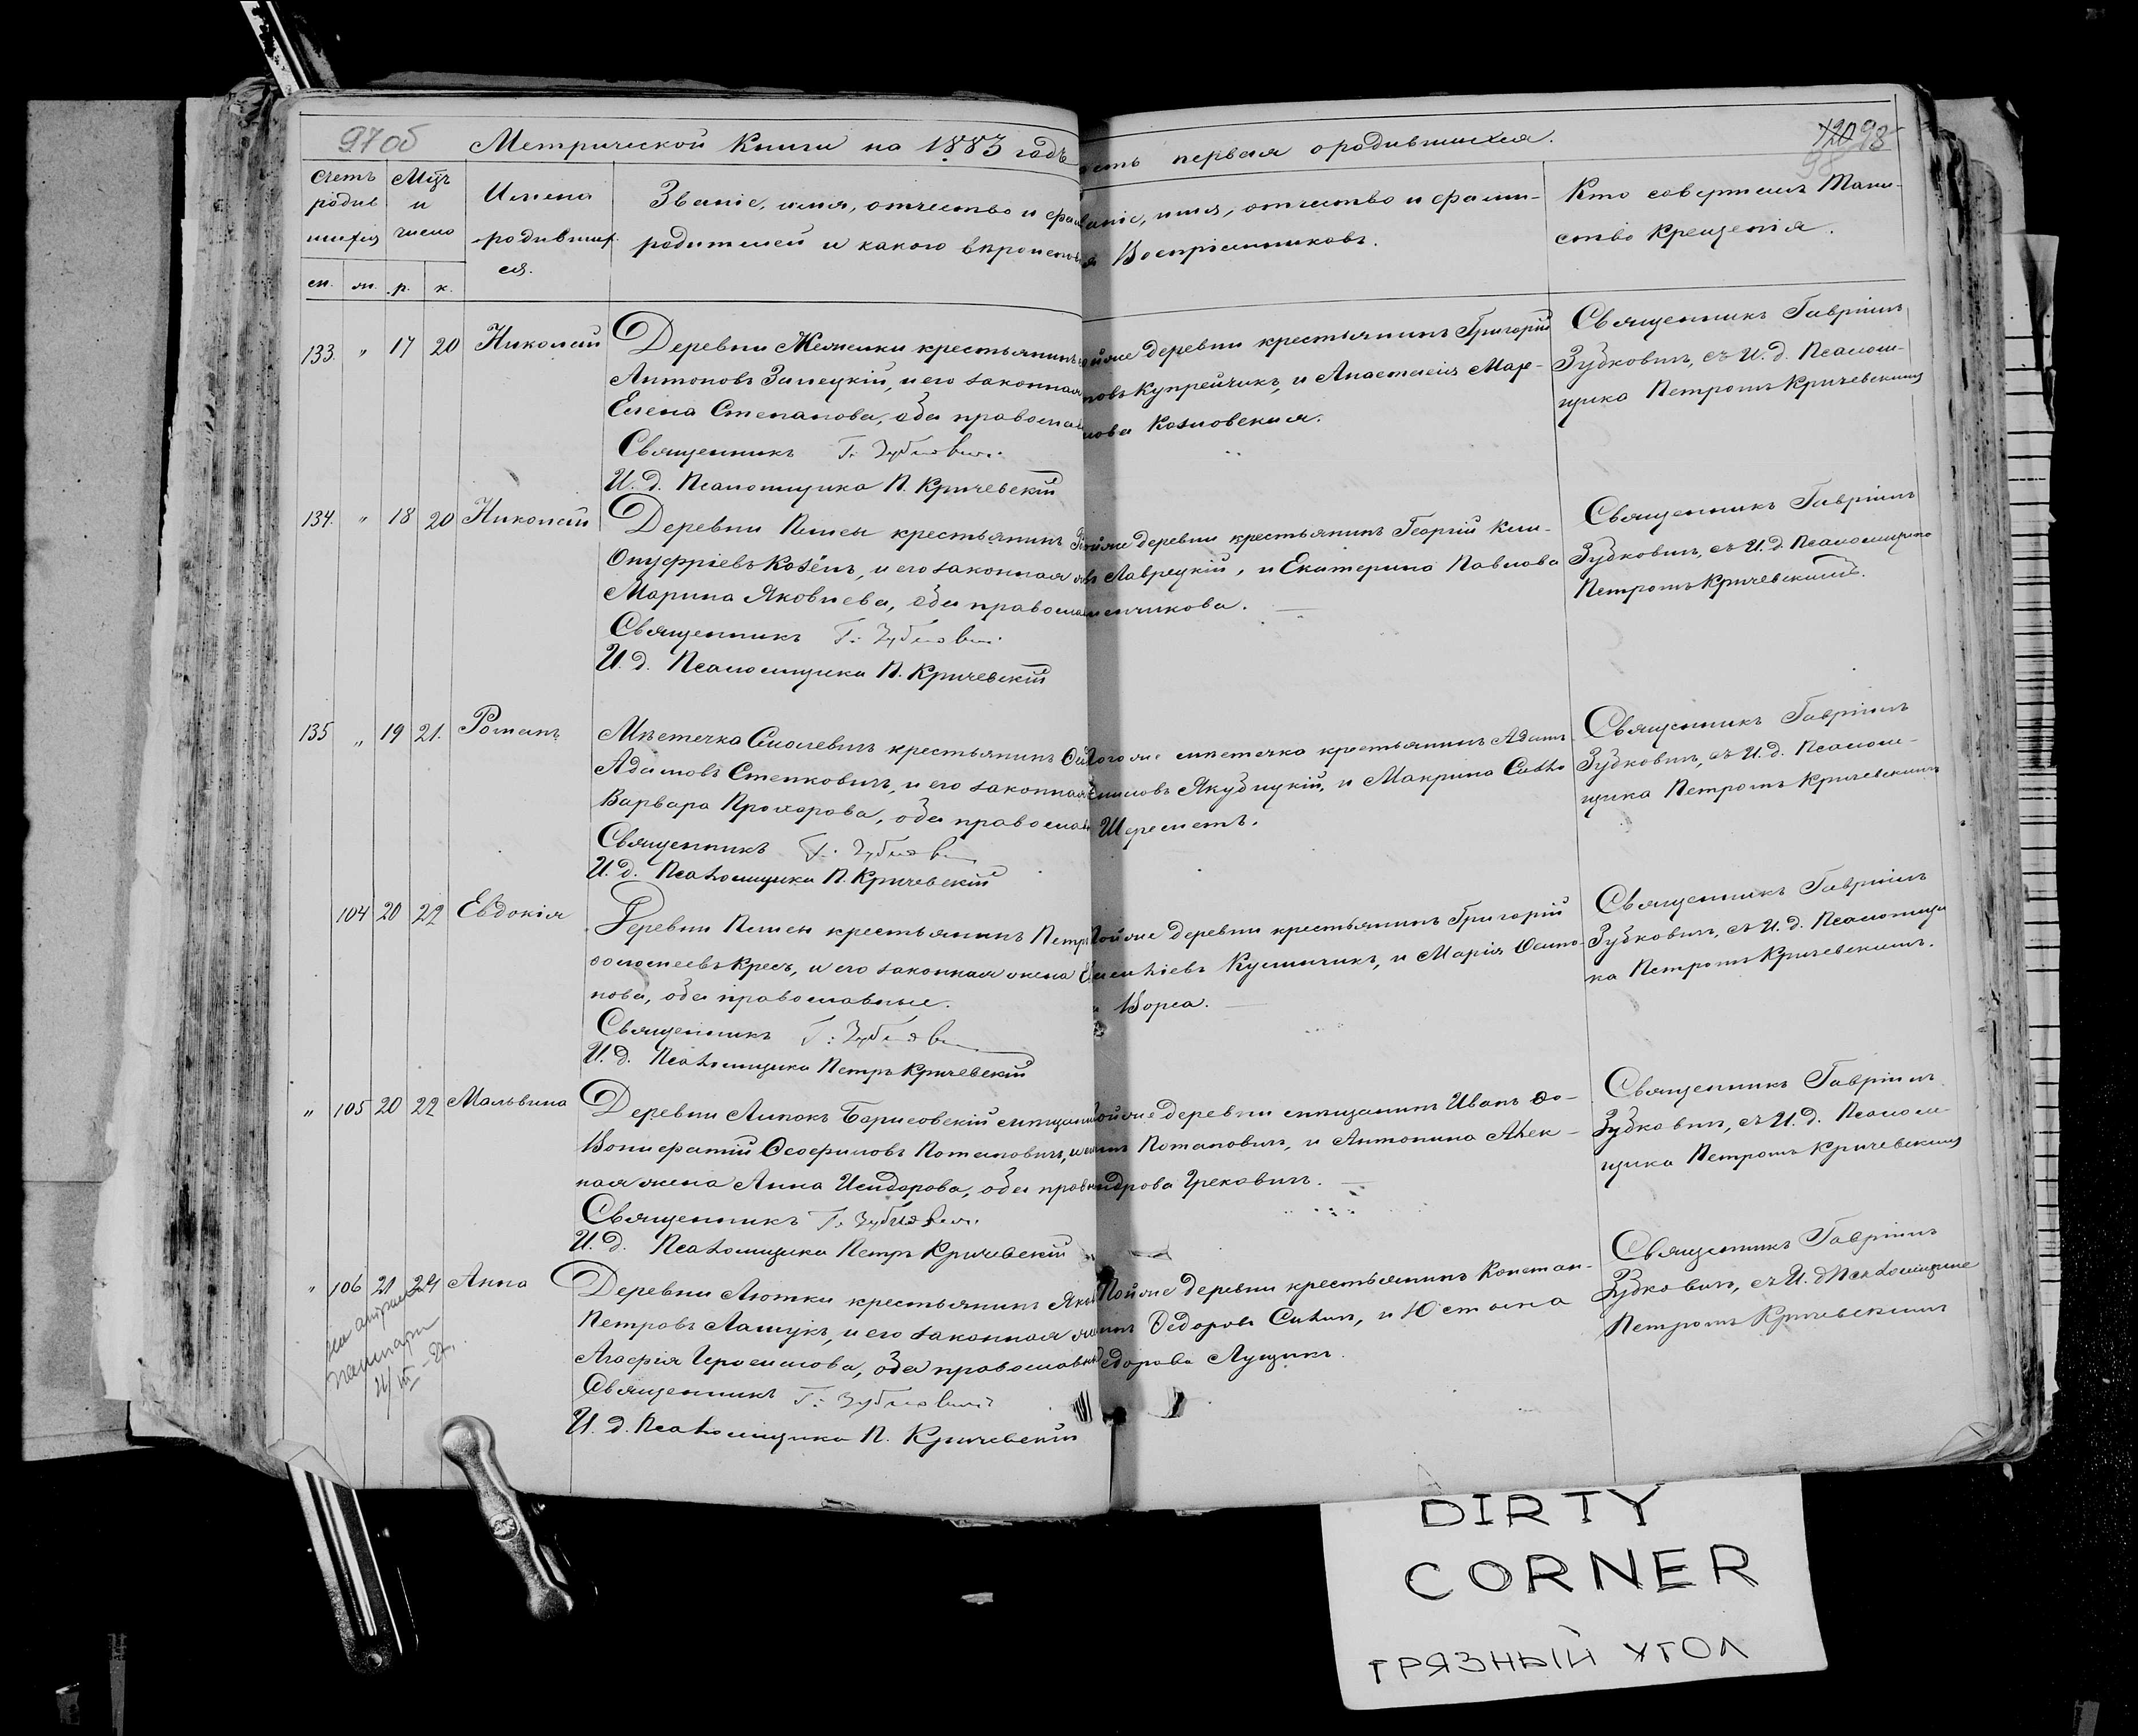 97об Метрической Книги на 1883 годъ
первая о родившихся. 98
Счетъ родив шихся
Мѣц. и число
Имена родившихся.
Званіе, имя, отчество и фам
родителей и какого вѣроиспов
аніе, имя, отчество и фами-
Воспріемниковъ.
Кто совершалъ Таин-
ство Крещенія.
м. р. к.
133. " 17 20 Николай
Деревни крестьянинъ
Антоновъ Залецкій, и его законная
Елена Степанова, оба правосла
Священникъ Г. Зубковичъ
И. д. Псаломщика П. Кричевскій
ойже деревни крестьянинъ Григорій
новъ Купрейчикъ, и Анастасія Мар-
нова Козловская.
Священникъ Гавріилъ
Зубковичъ, съ И. д. Псалом-
щика Петромъ Кричевскимъ
134. " 18 20 Николай
Деревни крестьянинъ
Онуфріевъ Козелъ, и его законная
Марина Яковлева, оба правосла
Священникъ Г. Зубковичъ
И. д. Псаломщика П. Кричевскій
ойже деревни крестьянинъ Георгій Кли-
Лаврецкій, и Екатерина Павлова
енчикова.
Священникъ Гавріилъ
Зубковичъ, съ И. д. Псаломщика
Петромъ Кричевскимъ.
135 " 19 21. Романъ
Мѣстечка Смолевичъ крестьянинъ
Адамовъ Стенковичъ, и его законная
Варвара Прохорова, оба православ
Священникъ Г. Зубковичъ
И. д. Псаломщика П. Кричевскій
Тогоже мѣстечка крестьянинъ Адамъ
Якубицкій, и Макрина Савво
Шереметъ.
Священникъ Гавріилъ
Зубковичъ, съ И. д. Псалом-
щика Петромъ Кричевскимъ
104 20 22 Евдокія
Деревни крестьянинъ Петръ
оломеевъ Кресъ, и его законная жена
нова, оба православные.
Священникъ Г: Зубковичъ
И. д. Псаломщика Петръ Кричевскій
Тойже деревни крестьянинъ Григорій
Куличикъ, и Марія Осипо-
Борса.
Священникъ Гавріилъ
Зубковичъ, съ И. д. Псаломщи
ка Петромъ Кричевскимъ.
" 105 20 22 Мальвина
Деревни Липокъ Борисовскій мѣщани
Вонифатій Ѳеофиловъ Потаповичъ, и
ная жена Анна Исидорова, оба прав
Священникъ Г. Зубковичъ
И. д. Псаломщика Петръ Кричевскій
ойже деревни мѣщанинъ Иванъ Ѳо-
Потаповичъ, и Антонина Алек-
ндрова Грековичъ.
Священникъ Гавріилъ
Зубковичъ, съ И. д. Псалом-
щика Петромъ Кричевскимъ
" 106 21 24 Анна
Деревни Лютки крестьянинъ Яков
Петровъ Лашукъ, и его законная
Агафія оба православн
Священникъ Г: Зубковичъ
И. д. Псаломщика П. Кричевскій
Тойже деревни крестьянинъ Констан-
Ѳедоровъ и Юстина
едорова Лущикъ.
Священникъ Гавріилъ
Зубковичъ, съ И. д. Псаломщика
Петромъ Кричевскимъ
DIRTY
CORNER
ГРЯЗНЫЙ УГОЛ